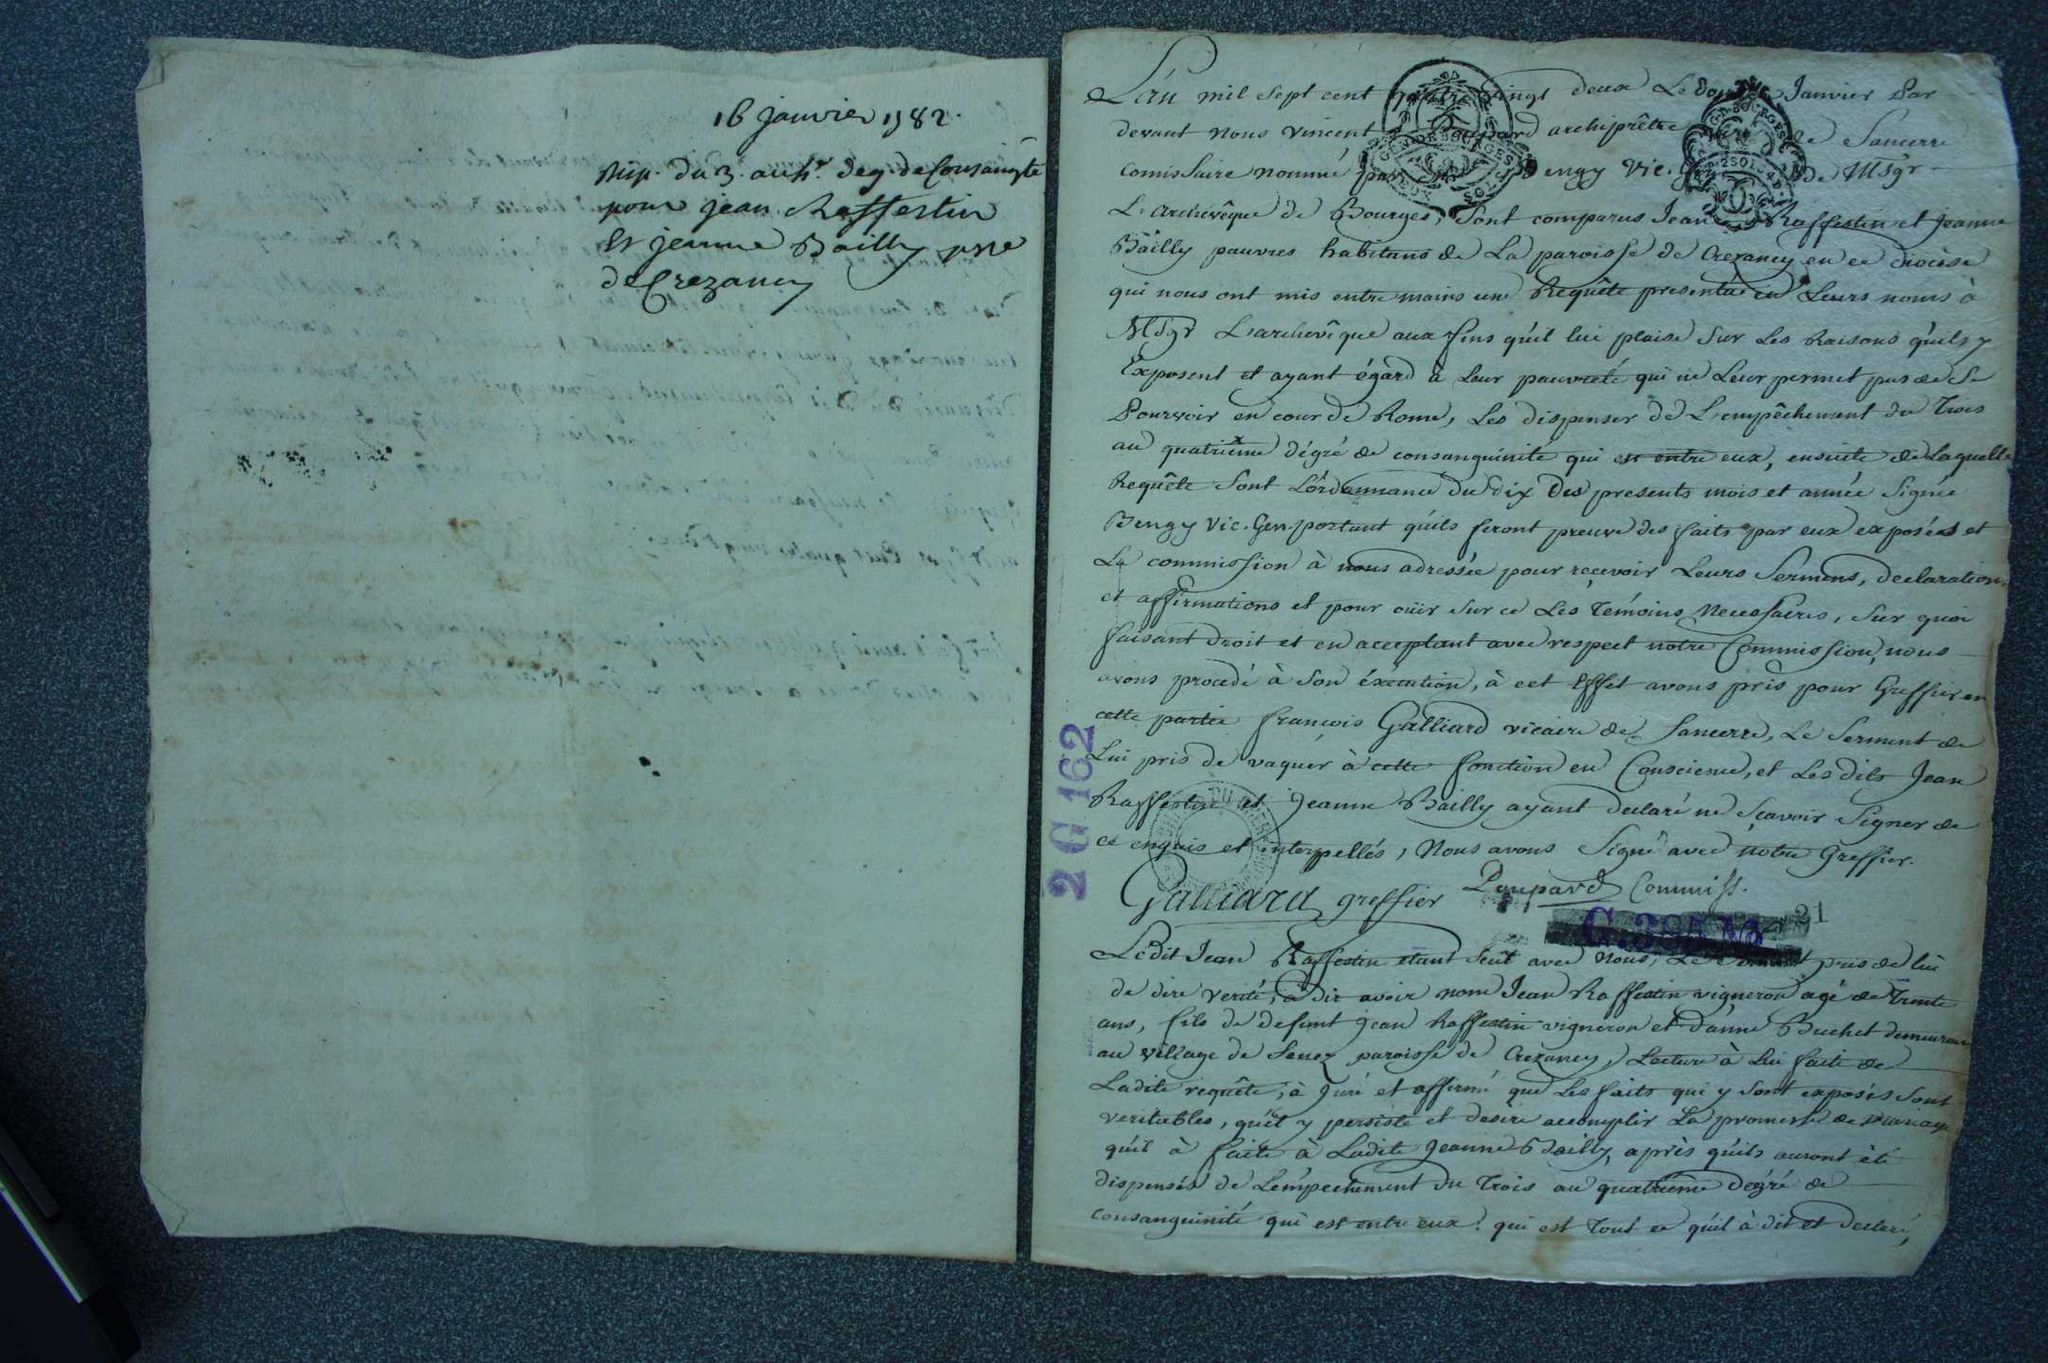 16 janvier 1782.
Disp. du 3. au 4e. deg. de Consangté
pour jean Raffestin
et jeanne Bailly psse
de Crezancy
L'an mil sept cent quatre vingt deux Le douze Janvier Par
devant Nous vincent Poupard archiprêtre curé de Sancerre
comissaire nommé par Bengy Vic. Gen. de Msgr
L'archevêque de Bourges, Sont comparus Jean Raffestin et Jeanne
Bailly pauvres habitans de La paroisse de Crezancy en ce diocèse
qui nous ont mis entre mains une Requête presentée en Leurs noms à
Msgr L'archevêque aux fins qu'il lui plaise Sur Les Raisons qu'ils y
Exposent et ayant égard à Leur pauvreté qui ne Leur permet pas de Se
Pourvoir en cour de Rome, Les dispenser de L'empêchement du Trois
au quatrième dégré de consanguinité qui est entre eux, ensuite de Laquelle
Requête Sont L'ordonnance du dix Des presents mois et année Signée
Bengy Vic. Gen. portant qu'ils feront preuve des faits par eux exposés et
La commission à nous adressée pour reçevoir Leurs Sermens, declarations
et affirmations et pour oüir Sur ce Les Temoins Necessaires, Sur quoi
faisant droit et en acceptant avec respect notre Commission, nous
avons procedé à Son éxecution, à cet Effet avons pris pour Greffier en
cette partie françois Galliard vicaire de Sancerre, Le Serment de
Lui pris de vaquer à cette fonction en Conscience, et Les dits Jean
Raffestin et Jeanne Bailly ayant declaré ne Sçavoir Signer de
ce enquis et interpellés, Nous avons Signé avec notre Greffier.
Galliard greffier Poupard Commiss.
2 G 162
21
Ledit Jean Raffestin étant Seul avec Nous, Le serment pris de lui
de dire verité, à dit avoir nom Jean Raffestin vigneron agé de Trente
ans, fils de defunt Jean Raffestin vigneron et d'anne Buchet demeurant
au village de Senez paroisse de Crezancy, Lecture à Lui faite de
Ladite requête, à Juré et affirmé que Les faits qui y Sont exposés Sont
veritables, qu'il y persiste et desire accomplir La promesse de mariage
qu'il à faite à Ladite Jeanne Bailly, après qu'ils auront été
dispensés de L'empechement du Trois au quatrieme dégré de
consanguinité qui est entre eux. qui est Tout ce qu'il à dit et declaré,